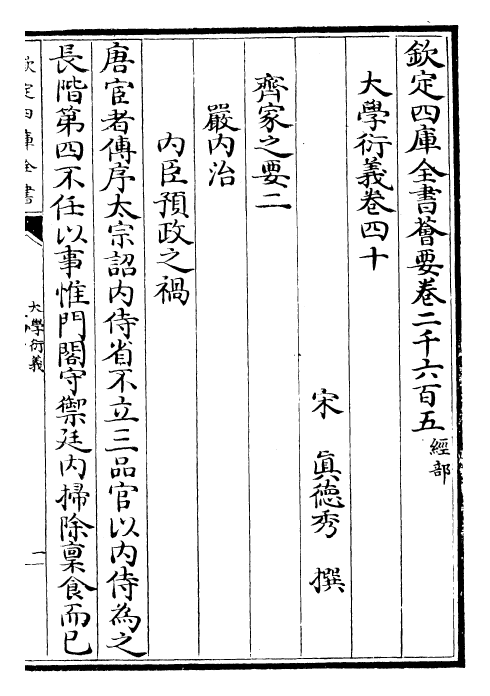 欽定四庫全書薈要卷二千六百五 經部
大學衍義卷四十
宋 真德秀 撰
齊家之要二
嚴內治
內臣預政之禍
唐宦者傳序太宗詔內侍省不立三品官以內侍為之
長階第四不任以事惟門閣守禦廷內掃除稟食而已
欽定四庫全書
大學衍義